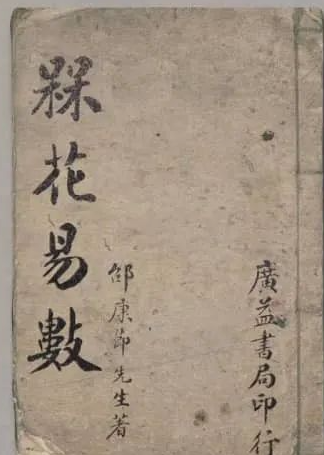 廣益書局印行
邵康節先生著
槑花易數